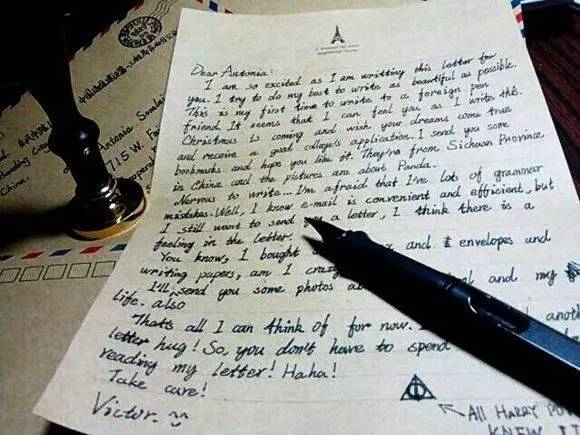 Dear Antonia:
I am so excited as I am writting this letter for
you. I try to do my best to write as beautiful as possible.
This is my first time to write to a foreign pen
friend. It seems that I can feel you as I write this.
Christmas is coming and wish your dreams come true
and receive a good college's application. I send you some
bookmarks and hope you like it. They're from Sichuan Province
in China and the pictures are about Panda.
Nervous to write... I'm afraid that I've lots of grammar
mistakes. Well, I know e-mail is convenient and efficient, but
I still want to send you a letter, I think there is a
feeling in the letter.
You know, I bought and envelopes and
writing papers, am I
I'll send you some photos and my
life. also
Thats all I can think of for now.
letter hug! So, you don't have to spend
reading my letter! Haha!
Take care!
Victor.
All HARRY
KNEW
Antonia
715 W.
China